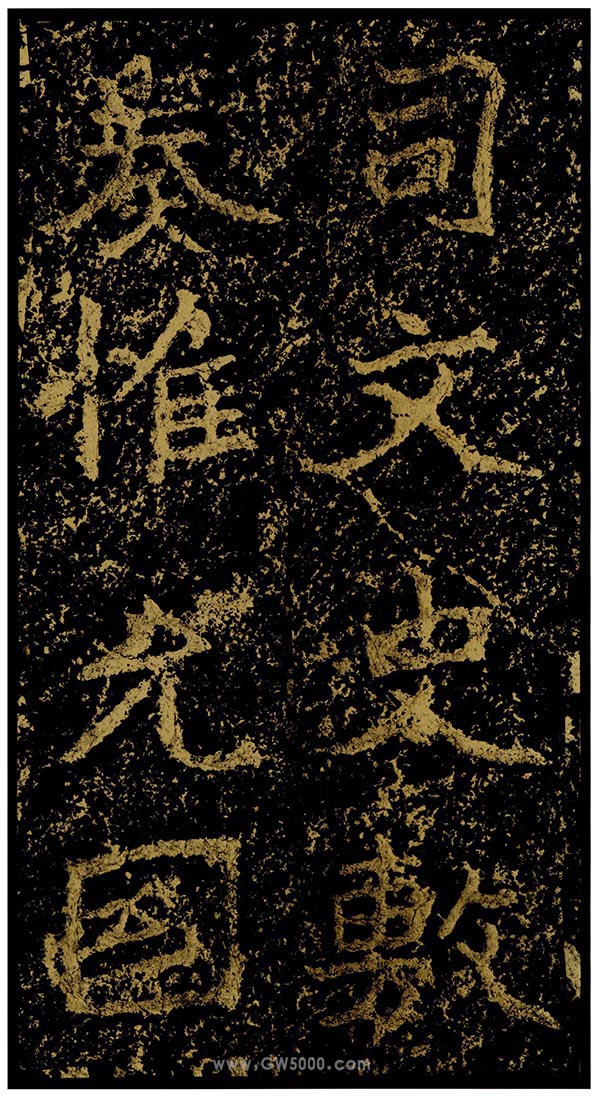 司文史敷
奏惟允國
www.GW5000.com